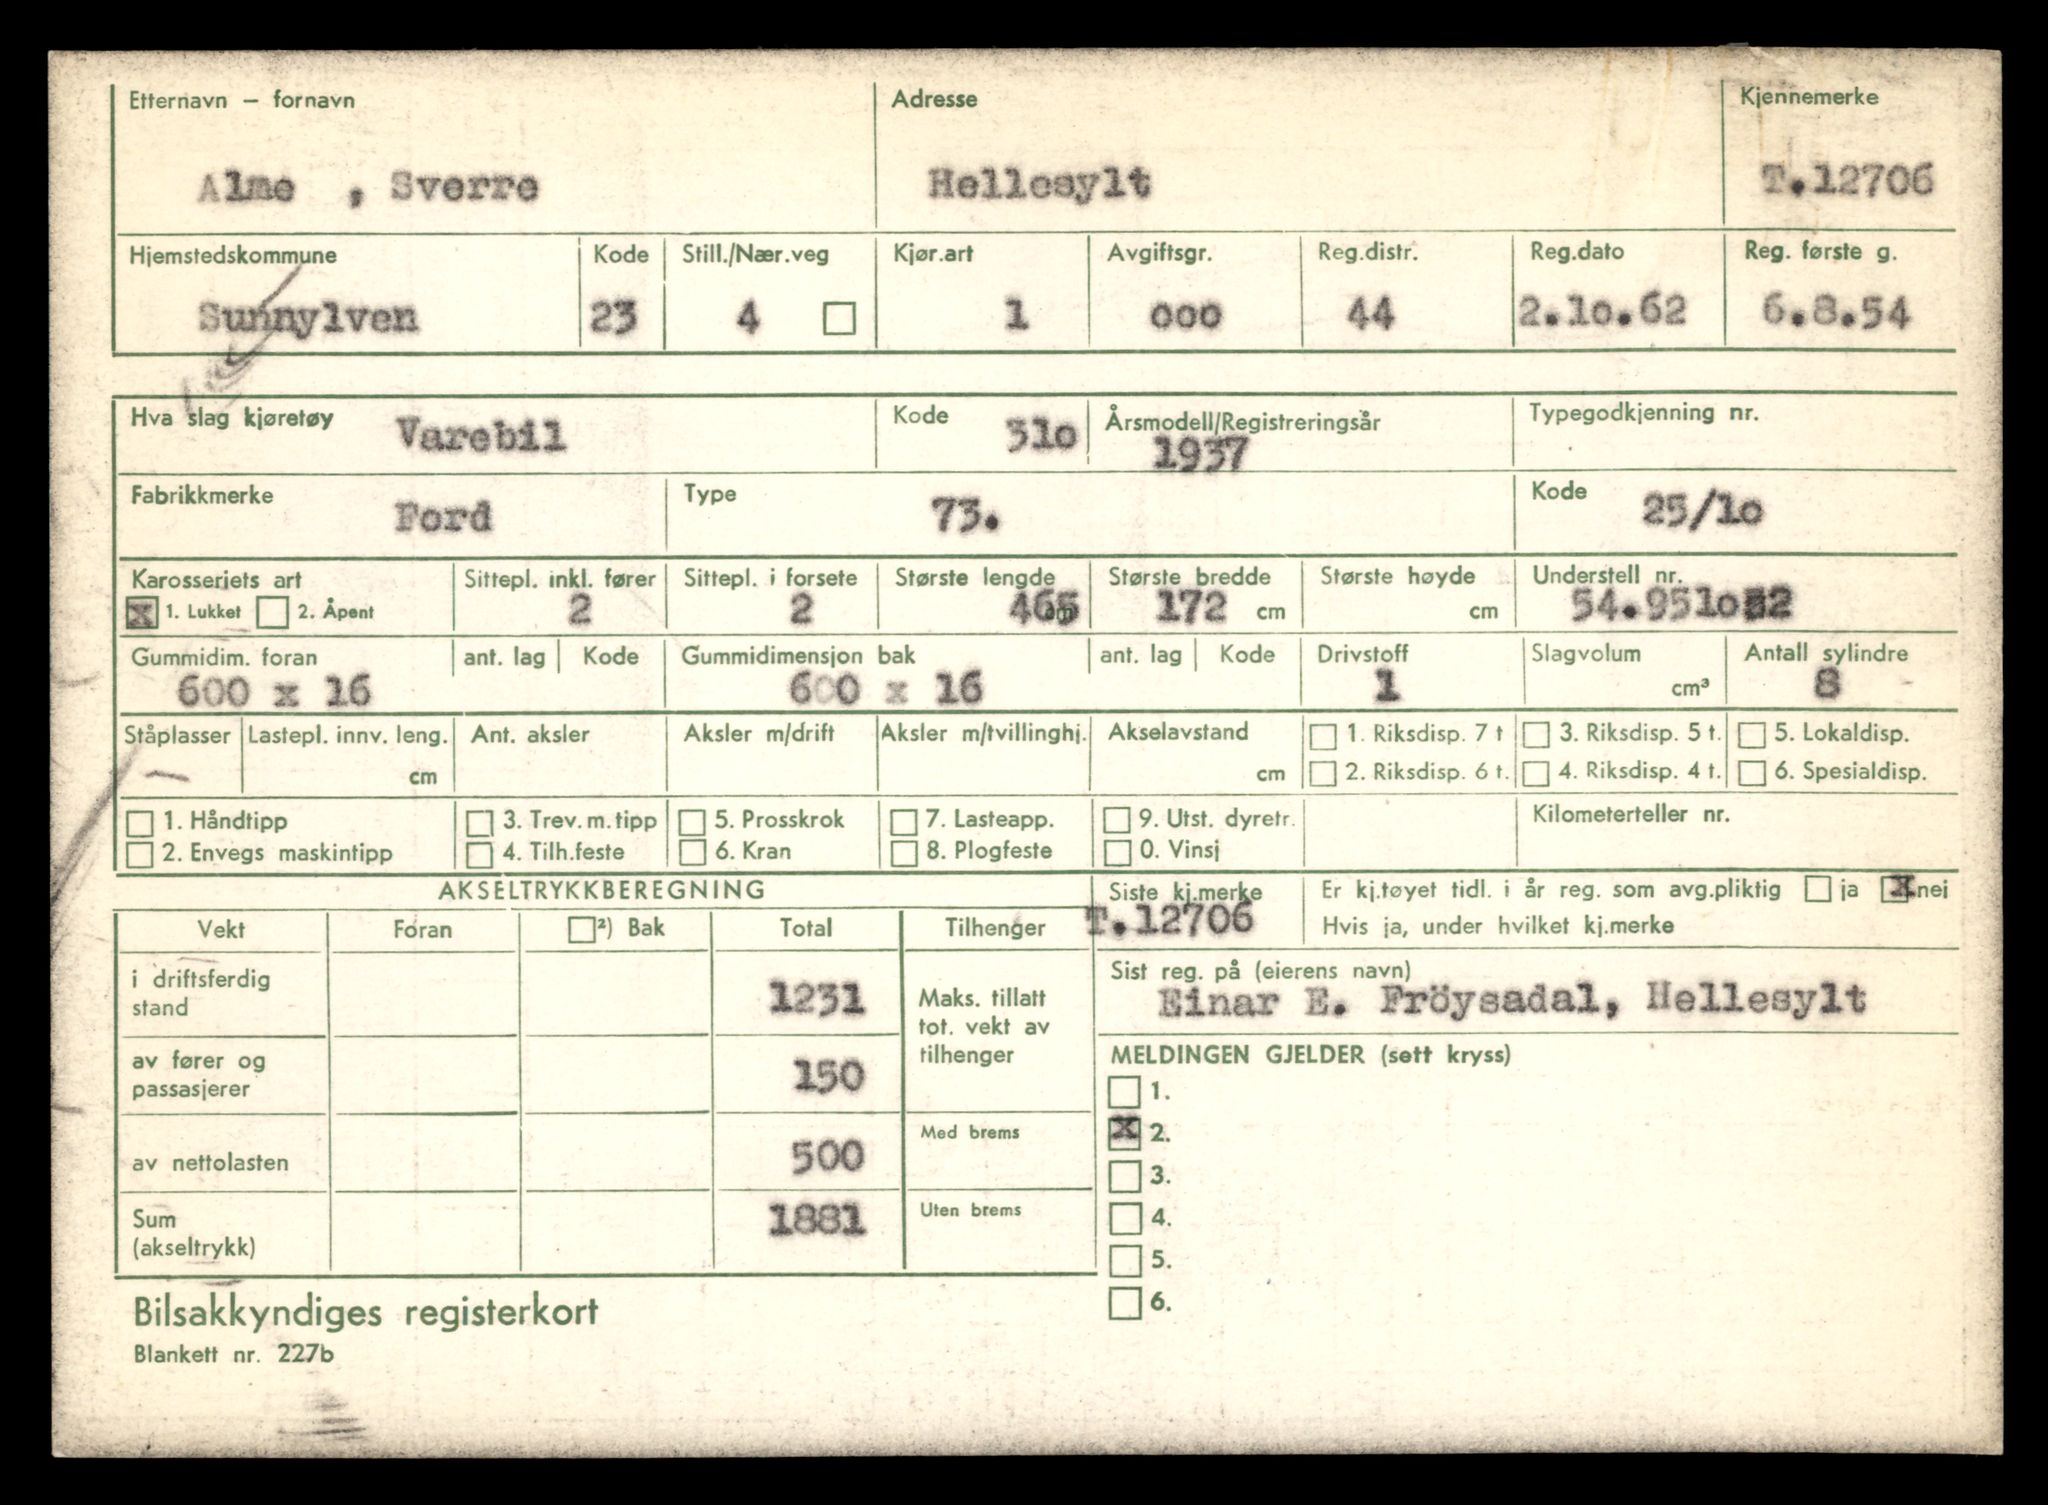 Etternavn – fornavn Adresse Kjennemerke
Alme , Sverre Hellesylt T.12706
Hjemstedskommune Kode Still./Nær.veg Kjør.art Avgiftsgr. Reg.distr. Reg.dato Reg. første g.
Sunnylven 23 4 1 ooo 44 2.1o.62 6.8.54
Hva slag kjøretøy Varebil Kode 31o Årsmodell/Registreringsår Typegodkjenning nr.
1937
Fabrikkmerke Ford Type 73. Kode 25/1o
Karosseriets art Sittepl. inkl. fører Sittepl. i forsete Største lengde Største bredde Største høyde Understell nr.
x 1. Lukket 2. Åpent 2 2 465 cm 172 cm cm 54.951o52
Gummidim. foran ant. lag Kode Gummidimensjon bak ant. lag Kode Drivstoff Slagvolum Antall sylindre
600 x 16 600 x 16 1 cm³ 8
Ståplasser Lastepl. innv. leng. Ant. aksler Aksler m/drift Aksler m/tvillinghj. Akselavstand 1. Riksdisp. 7 t 3. Riksdisp. 5 t. 5. Lokaldisp.
cm cm 2. Riksdisp. 6 t. 4. Riksdisp. 4 t. 6. Spesialdisp.
1. Håndtipp 3. Trev. m. tipp 5. Prosskrok 7. Lasteapp. 9. Utst. dyretr. Kilometerteller nr.
2. Envegs maskintipp 4. Tilh.feste 6. Kran 8. Plogfeste 0. Vinsj
AKSELTRYKKBEREGNING Siste kj.merke Er kj.tøyet tidl. i år reg. som avg.pliktig ja x nei
T.12706
Vekt Foran ²) Bak Total Tilhenger Hvis ja, under hvilket kj.merke
i driftsferdig stand 1231 Maks. tillatt tot. vekt av tilhenger
Sist reg. på (eierens navn)
Einar E. Fröysadal, Hellesylt
av fører og passasjerer 150
MELDINGEN GJELDER (sett kryss)
1.
x 2.
av nettolasten 500 Med brems
3.
Sum (akseltrykk) 1881 Uten brems
4.
5.
6.
Bilsakkyndiges registerkort
Blankett nr. 227b